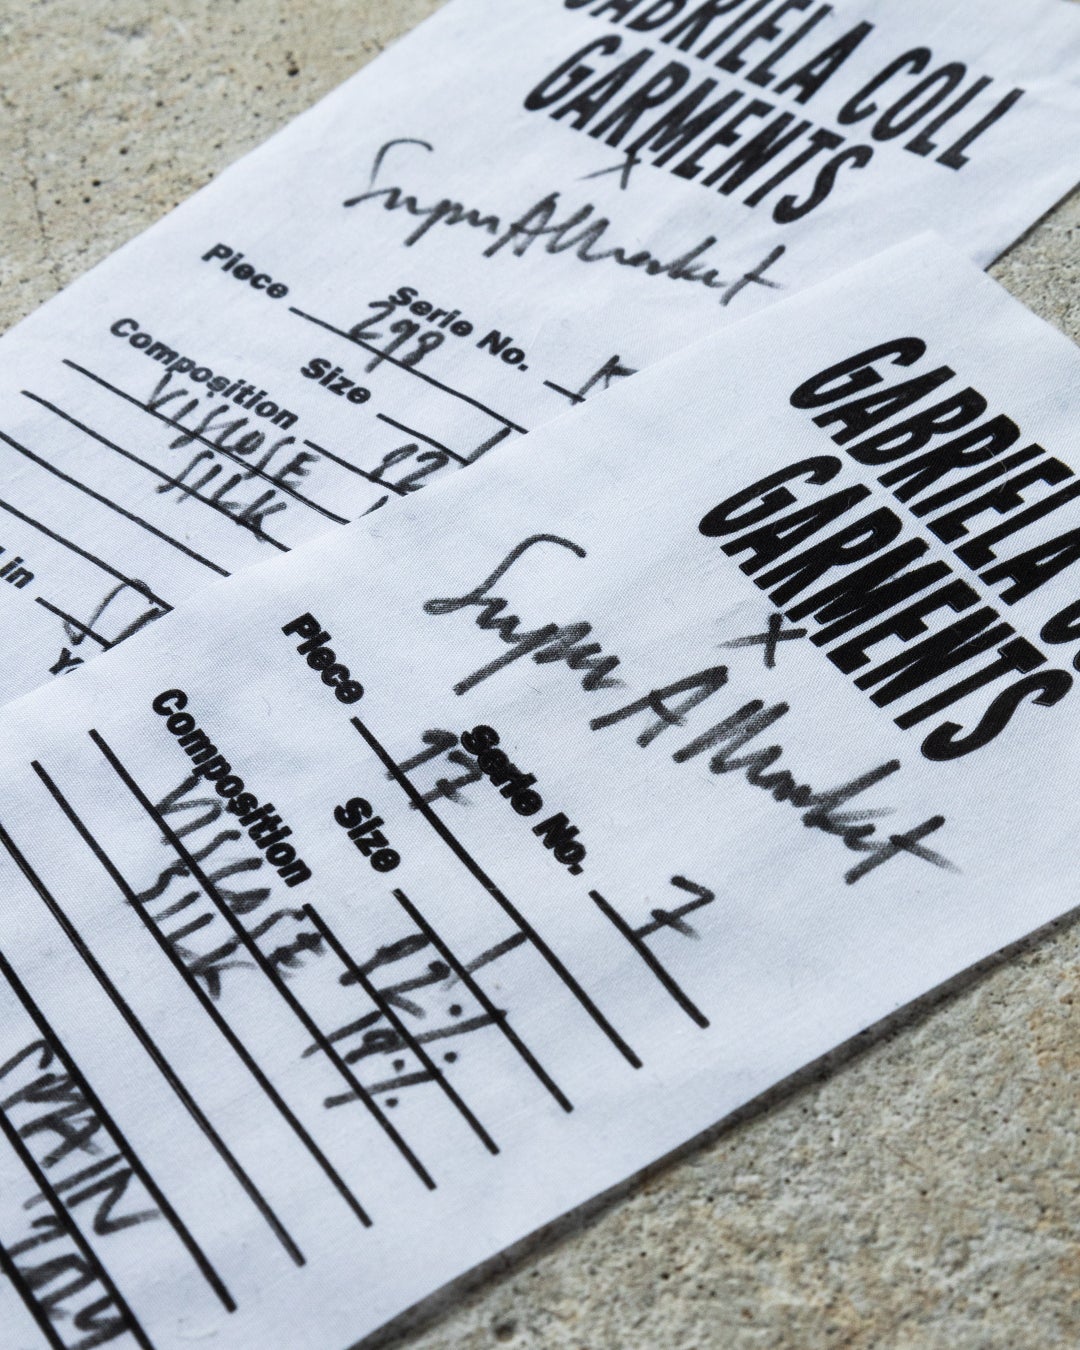 GABRIELA COLL
GARMENTS
x
SuperAMarket
Piece 298 Serie No.
Size
Composition
VISCOSE 82
SILK
in
GABRIELA
GARMENTS
x
Super AMarket
Piece 97 Serie No. 7
Size 1
Composition
VISCOSE 82%
SILK 18%
SPAIN